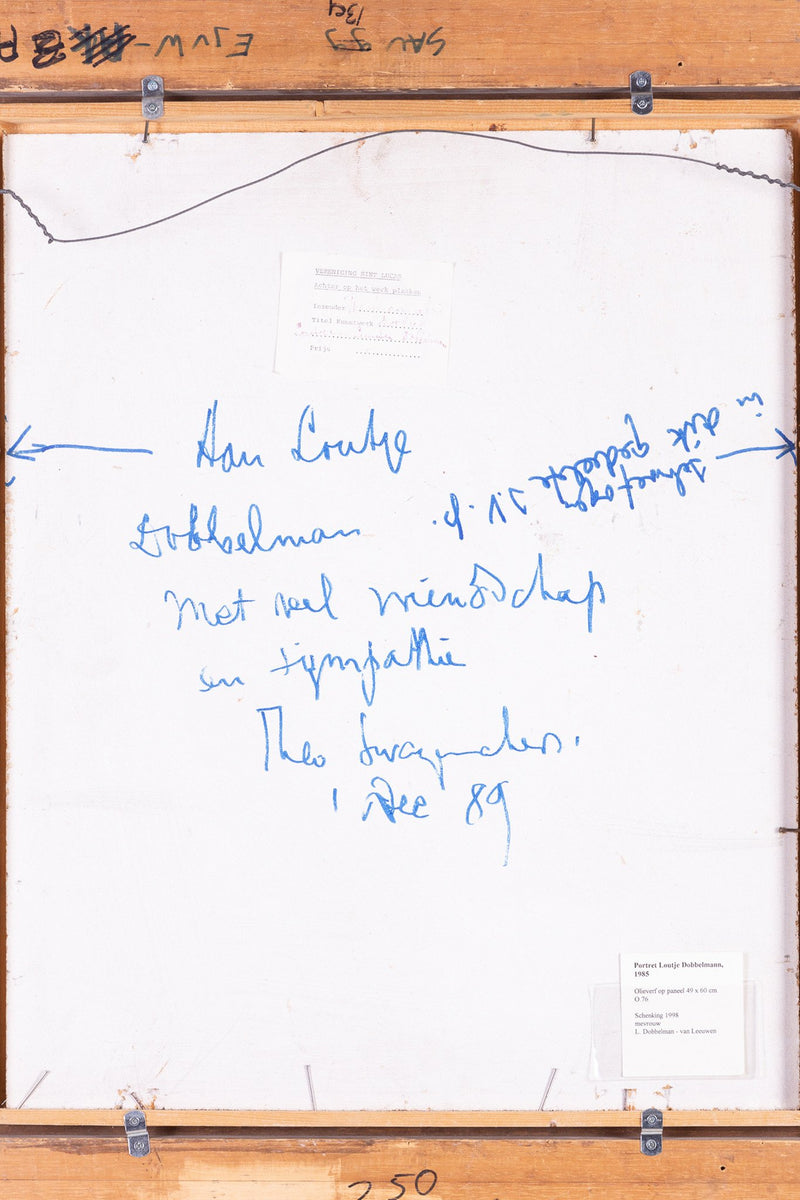 SAU 99
134
EJVW-
VERENIGING SINT LUCAS
Achter op het werk plakken
Inzender
Titel Kunstwerk
Prijs
Aan Loutje
Dobbelman
Met veel vriendschap
en sympathie
Theo Swagemakers.
1 Dec 89
schroefogen
in dik gedeelte s.v.p.
Portret Loutje Dobbelmann,
1985
Olieverf op paneel 49 x 60 cm
O 76
Schenking 1998
mevrouw
L. Dobbelman - van Leeuwen
250